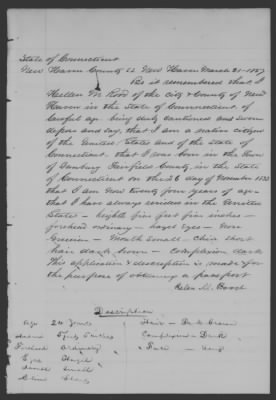 State of Connecticut
New Haven County ss New Haven March 21 1857
Be it remembered that I
Hellen M Root of the city & County of New
Haven in the State of Connecticut of
lawful age being duly cautioned and sworn
depose and say, that I am a native citizen
of the United States and of the State of
Connecticut that I was born in the Town
of Danbury Fairfield County in the State
of Connecticut on the 26 day of November 1832
that I am now twenty four years of age
that I have always resided in the United
States - height five feet five inches -
forehead ordinary - hazel Eyes - Nose
Grecian - Mouth Small - Chin short
hair dark brown - Complexion dark
This application & description is made for
the purpose of obtaining a passport
Helen M. Root
Description
Age 24 Years Hair - Dark Brown
Stature 5 feet 5 inches Complexion - Dark
Forehead Ordinary Face -
Eyes Hazel
Mouth Small
Chin Short